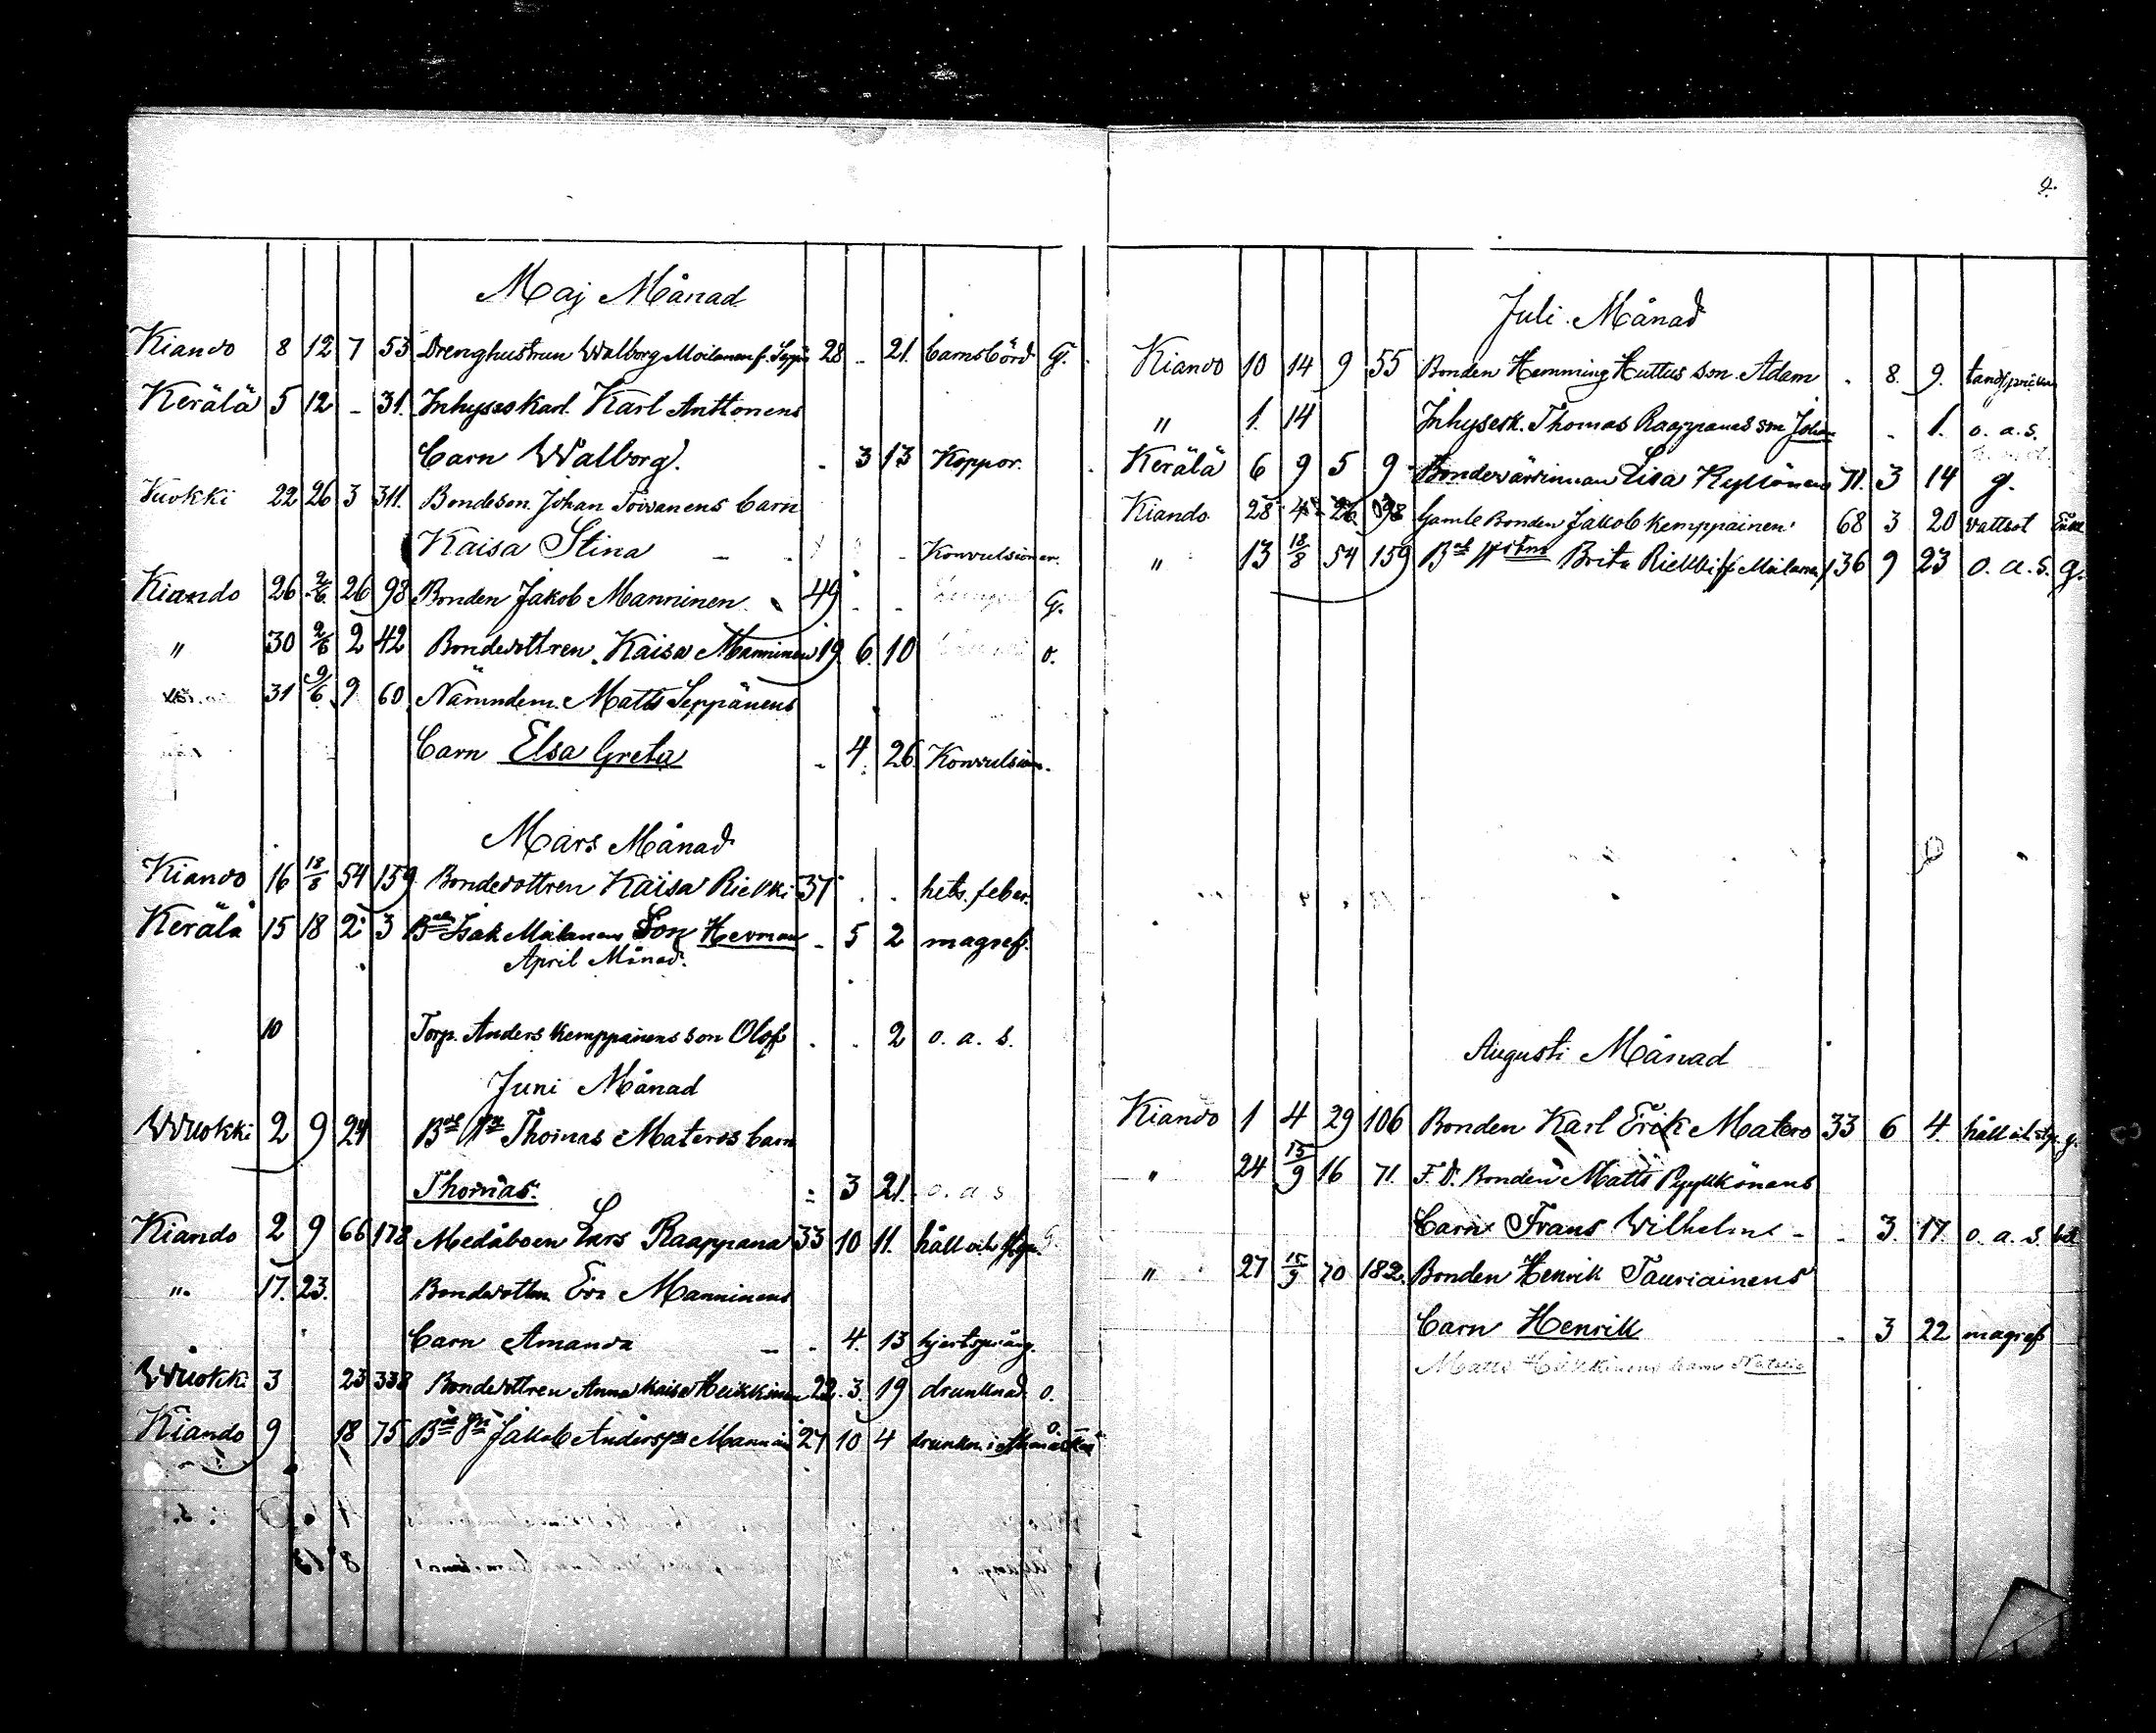 Maj Månad
Kiando 8 12 7 53 Drenghustrun Walborg Moilanen f. Seppä 28 - 21. barnsbörd G.
Kerälä 5 12 - 31. Inhyseskarl Karl Anttonens
barn Walborg. - 3 13 Koppor.
Vuokki 22 26 3 311. Bondeson. Johan Toivanens barn
Kaisa Stina - - Konvulsioner.
Kiando 26 2/6 26 98 Bonden Jakob Manninen 49 - - G.
" 30 9/6 2 42 Bondedottren Kaisa Manninen 19. 6. 10 o.
31 9/6 9 60 Nämndem. Matts Seppänens
barn Elsa Greta - 4. 26. Konvulsion.
Mars Månad
Kiando 16 18/8 54 159 Bondedottren Kaisa Riekki 37 . . hets. feber.
Kerälä 15 18 2 3 Isak Moilanens Son Herman - 5 2 magref.
April Månad.
10 Torp. Anders Kemppainens son Olof . . 2 o. a. s.
Juni Månad
Wuokki 2 9 24 Thomas Materos barn
Thomas. - 3 21. o. a. s
Kiando 2 9 66 178 Medåboen Lars Raappana 33 10 11. håll och styn. G.
" 17. 23. Bondedottern Eva Manninens
barn Amanda - - 4. 13 hjertspräng.
Wuokki 3 23 338 Bondedottren Anna Kaisa Heikkinen 22. 3. 19 drunknad o.
Kiando 9 18 75 Jakob Andersson Manninen 27 10 4 drunkn. o.
9.
Juli Månad
Kiando 10 14 9 55 Bonden Hemming Huttus son Adam - 8. 9. tandsprickn
" 1. 14 Inhysesk. Thomas Raappanas son Johan - 1. o. a. s.
Kerälä 6 9 5 9 Bondevärdinnan Lisa Kyllönen 71. 3 14 g.
Kiando 28 4 26 98 Gamle Bonden Jakob Kemppainen 68 3 20 vattsot Enkl
" 13 18/8 54 159 Brita Riekki f. Moilanen 36 9 23 o. a. s. g.
Augusti Månad
Kiando 1 4 29 106 Bonden Karl Erik Matero 33 6 4. håll och styn g.
" 24 15/9 16 71. F. D. Bonden Matts Pyykkönens
barn Frans Wilhelm - - 3. 17. o. a. s.
" 27 15/9 70 182. Bonden Henrik Tauriainens
barn Henrik - 3 22 magref
Matts Heikkinens barn Natalia